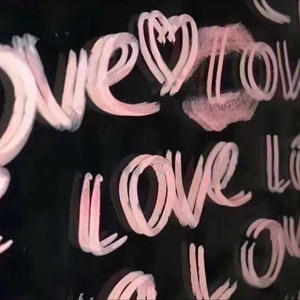 ove ♥ Lov
Love Lo
Lo